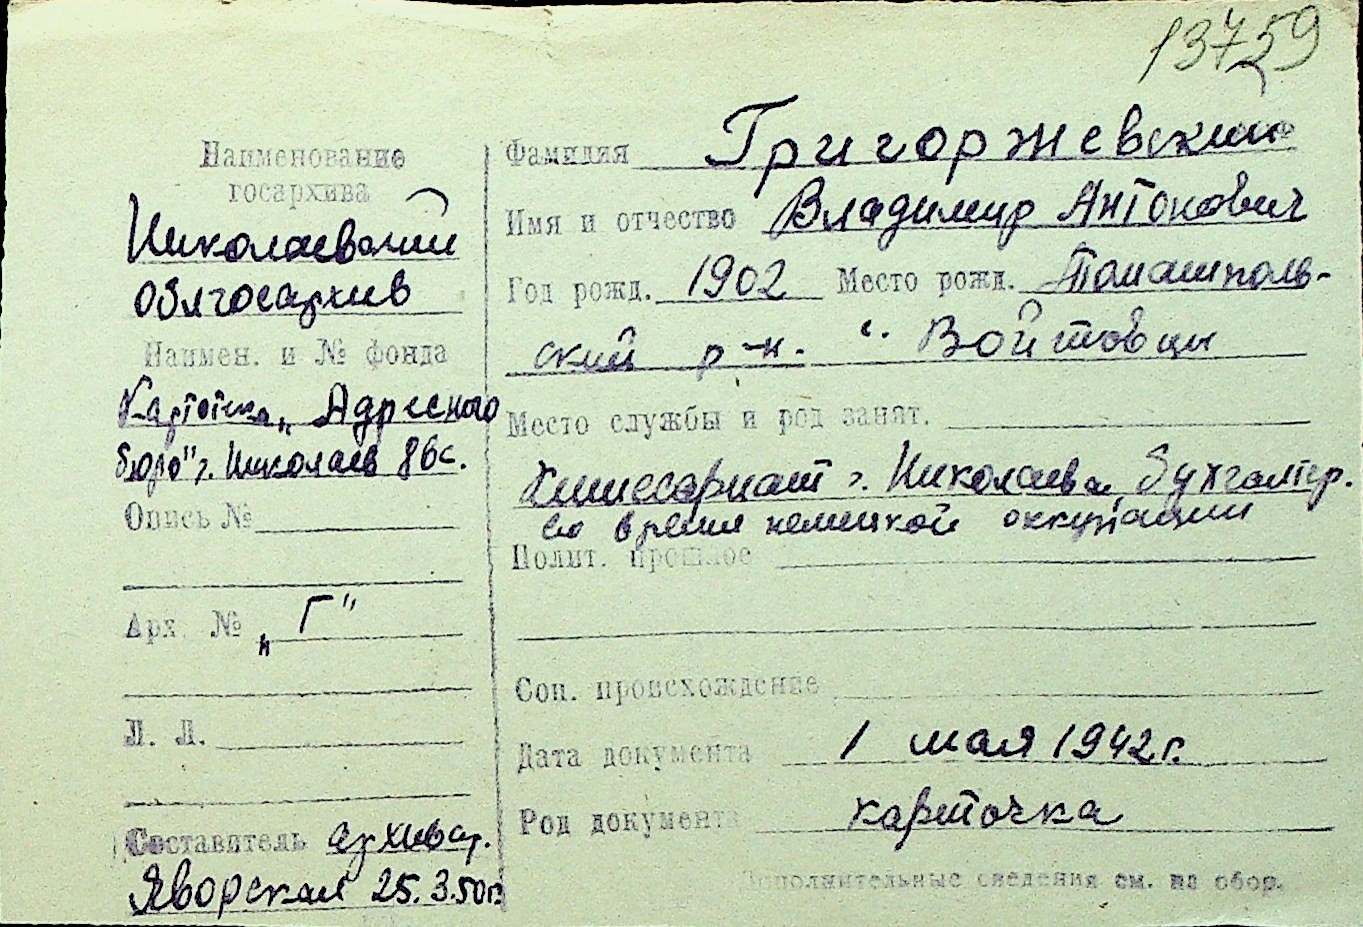 13759
Наименование
госархива
Николаевский
облгосархив
Наимен. и № фонда
Картотека „Адресного
бюро" г. Николаев 86с.
Опись №
Арх. № „Г"
Л. Л.
Составитель архивар.
Яворская 25.3.50г.
Фамилия Григоржевский
Имя и отчество Владимир Антонович
Год рожд. 1902 Место рожд. Томашполь-
ский р-н. с. Войтовцы
Место службы и род занят.
г. Николаева, бухгалтер.
во время немецкой оккупации
Полит. прошлое
Соц. происхождение
Дата документа 1 мая 1942г.
Род документа карточка
Дополнительные сведения см. на обор.